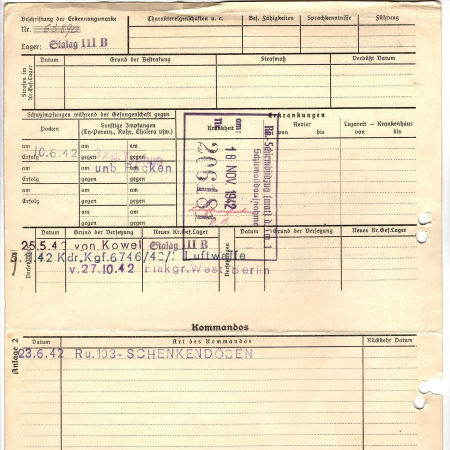 Beschriftung der Erkennungsmarke
Nr.
Lager: Stalag III B
Charaktereigenschaften u. a.
Bes. Fähigkeiten
Sprachkenntnisse
Führung
Strafen im Kr.Gef.Lager
Datum
Grund der Bestrafung
Strafmaß
Verbüßt Datum
Schutzimpfungen während der Gefangenschaft gegen
Erkrankungen
Pocken
Sonstige Impfungen
(Ty-Paraty., Ruhr, Cholera usw.)
Krankheit
Revier
von bis
Lazarett - Krankenhaus
von bis
am 10.6.42
Erfolg
am
gegen
am
gegen
und Pocken
am
Erfolg
am
gegen
am
gegen
am
Erfolg
am
gegen
am
gegen
am:
18 NOV. 1942
206181
Datum
Grund der Versetzung
Neues Kr.Gef.Lager
Datum
Grund der Versetzung
Neues Kr.Gef.Lager
Versetzungen
25.5.42 von Kowel Stalag III B
42 Kdr. Kgf. 6746/42/ Luftwaffe
v. 27.10.42 Flakgr. West Berlin
Kommandos
Anlage 2
Datum
Art des Kommandos
Rückkehr Datum
23.6.42 Ru. 103- SCHENKENDÖBEN